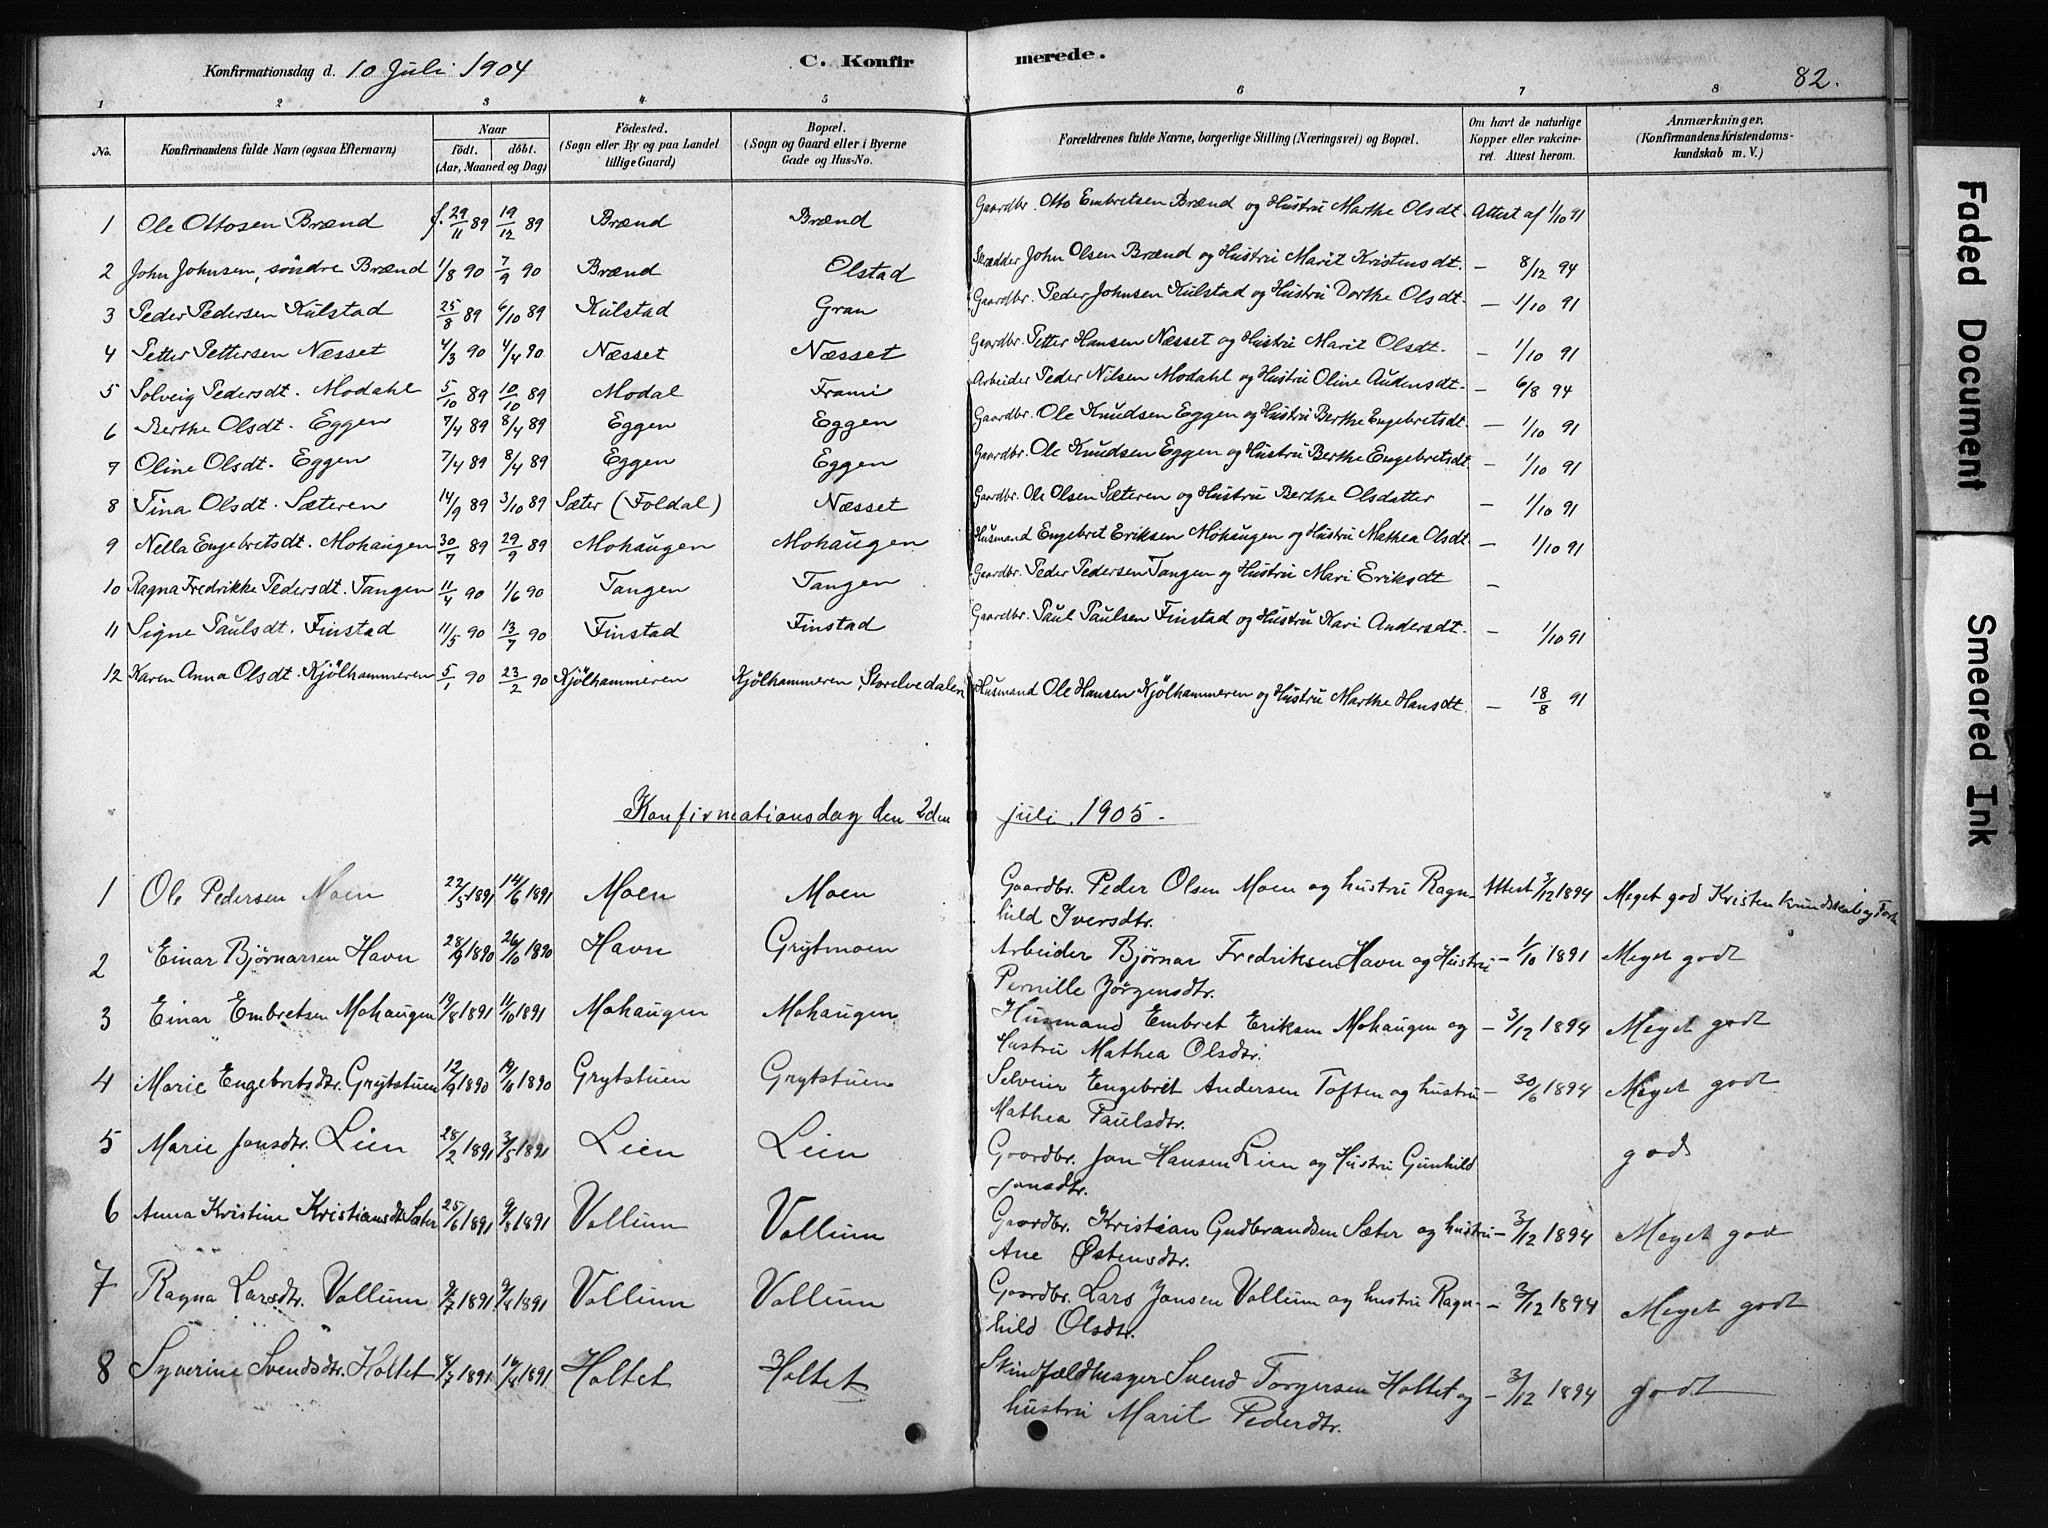 Konfirmationsdag d. 10 Juli 1904 C. Konfirmerede. 82.
1 2 3 4 5 6 7 8
No. Konfirmandens fulde Navn (ogsaa Efternavn) Naar födt. döbt. (Aar, Maaned og Dag) Födested. (Sogn eller By og paa Landet tillige Gaard) Bopæl. (Sogn og Gaard eller i Byerne Gade og Hus-No. Forældrenes fulde Navne, borgerlige Stilling (Næringsvei) og Bopæl. Om havt de naturlige Kopper eller vakcineret. Attest herom. Anmærkninger. (Konfirmandens Kristendomskundskab m. V.)
1 Ole Ottosen Brænd f. 29/11 89 19/12 89 Brænd Brænd Gaardbr. Otto Embretsen Brænd og Hustru Marthe Olsdt. Attest af 1/10 91
2 John Johnsen, søndre Brænd 1/8 90 7/9 90 Brænd Olstad Skrædder John Olsen Brænd og Hustru Marit Kristensdt. — 8/12 94
3 Peder Pedersen Kulstad 25/8 89 6/10 89 Kulstad Gran Gaardbr. Peder Johnsen Kulstad og Hustru Dorthe Olsdt. — 1/10 91
4 Petter Pettersen Næsset 4/3 90 4/4 90 Næsset Næsset Gaardbr. Petter Hansen Næsset og Hustru Marit Olsdt. — 1/10 91
5 Solveig Pedersdt. Modahl 5/10 89 10/10 89 Modal Frami Arbeider Peder Nilsen Modahl og Hustru Oline Audensdt. — 6/8 94
6 Berthe Olsdt. Eggen 7/4 89 8/4 89 Eggen Eggen Gaardbr. Ole Knudsen Eggen og Hustru Berthe Engebretsdt. — 1/10 91
7 Oline Olsdt. Eggen 7/4 89 8/4 89 Eggen Eggen Gaardbr. Ole Knudsen Eggen og Hustru Berthe Engebretsdt. — 1/10 91
8 Tina Olsdt. Sæteren 14/9 89 3/10 89 Sæter (Foldal) Næsset Gaardbr. Ole Olsen Sæteren og Hustru Berthe Olsdatter — 1/10 91
9 Nella Engebretsdt. Mohaugen 30/7 89 29/9 89 Mohaugen Mohaugen Husmand Engebret Eriksen Mohaugen og Hustru Mathea Olsdt. — 1/10 91
10 Ragna Fredrikke Pedersdt. Tangen 11/4 90 1/6 90 Tangen Tangen Gaardbr. Peder Pedersen Tangen og Hustru Mari Eriksdt —
11 Signe Paulsdt. Finstad 11/5 90 13/7 90 Finstad Finstad Gaardbr. Paul Paulsen Finstad og Hustru Kari Andersdt. — 1/10 91
12 Karen Anna Olsdt. Kjölhammeren 5/1 90 23/2 90 Kjölhammeren Kjölhammeren, Storelvedalen Husmand Ole Hansen Kjölhammeren og Hustru Marthe Hansdt. — 18/8 91
Konfirmationsdag den 2den juli 1905.
1 Ole Pedersen Moen 22/5 1891 14/6 1891 Moen Moen Gaardbr. Peder Olsen Moen og hustru Ragnhild Iversdtr. Attest 3/12 1894 Meget god Kristenkundskab og
2 Einar Bjørnarsen Havn 28/9 1890 26/10 1890 Havn Grytmoen Arbeider Bjørnar Fredriksen Havn og Hustru Pernille Jørgensdtr. — 1/10 1891 Meget godt
3 Einar Embretsen Mohaugen 19/8 1891 11/10 1891 Mohaugen Mohaugen Husmand Embret Eriksen Mohaugen og Hustru Mathea Olsdtr. — 3/12 1894 Meget godt
4 Marie Engebretsdtr. Grytstuen 12/9 1890 19/10 1890 Grytstuen Grytstuen Selveier Engebret Andersen Toften og hustru Mathea Paulsdtr. — 30/6 1894 Meget godt
5 Marie Jonsdtr. Lien 28/2 1891 3/5 1891 Lien Lien Gaardbr. Jon Hansen Lien og Hustru Gunhild Jonsdtr. god
6 Anna Kristine Kristiansdtr Sæter 25/6 1891 9/8 1891 Vollum Vollum Gaardbr. Kristian Gudbrandsen Sæter og hustru Ane Østensdtr. — 3/12 1894 Meget god
7 Ragna Larsdtr. Vollum 2/7 1891 9/8 1891 Vollum Vollum Gaardbr. Lars Jonsen Vollum og hustru Ragnhild Olsdtr. — 3/12 1894 Meget godt
8 Syverine Svendsdtr. Holtet 8/7 1891 16/8 1891 Holtet Holtet Skindfældmager Svend Torgersen Holtet og hustru Marit Pedersdtr. — 3/12 1894 godt
Faded Document
Smeared Ink